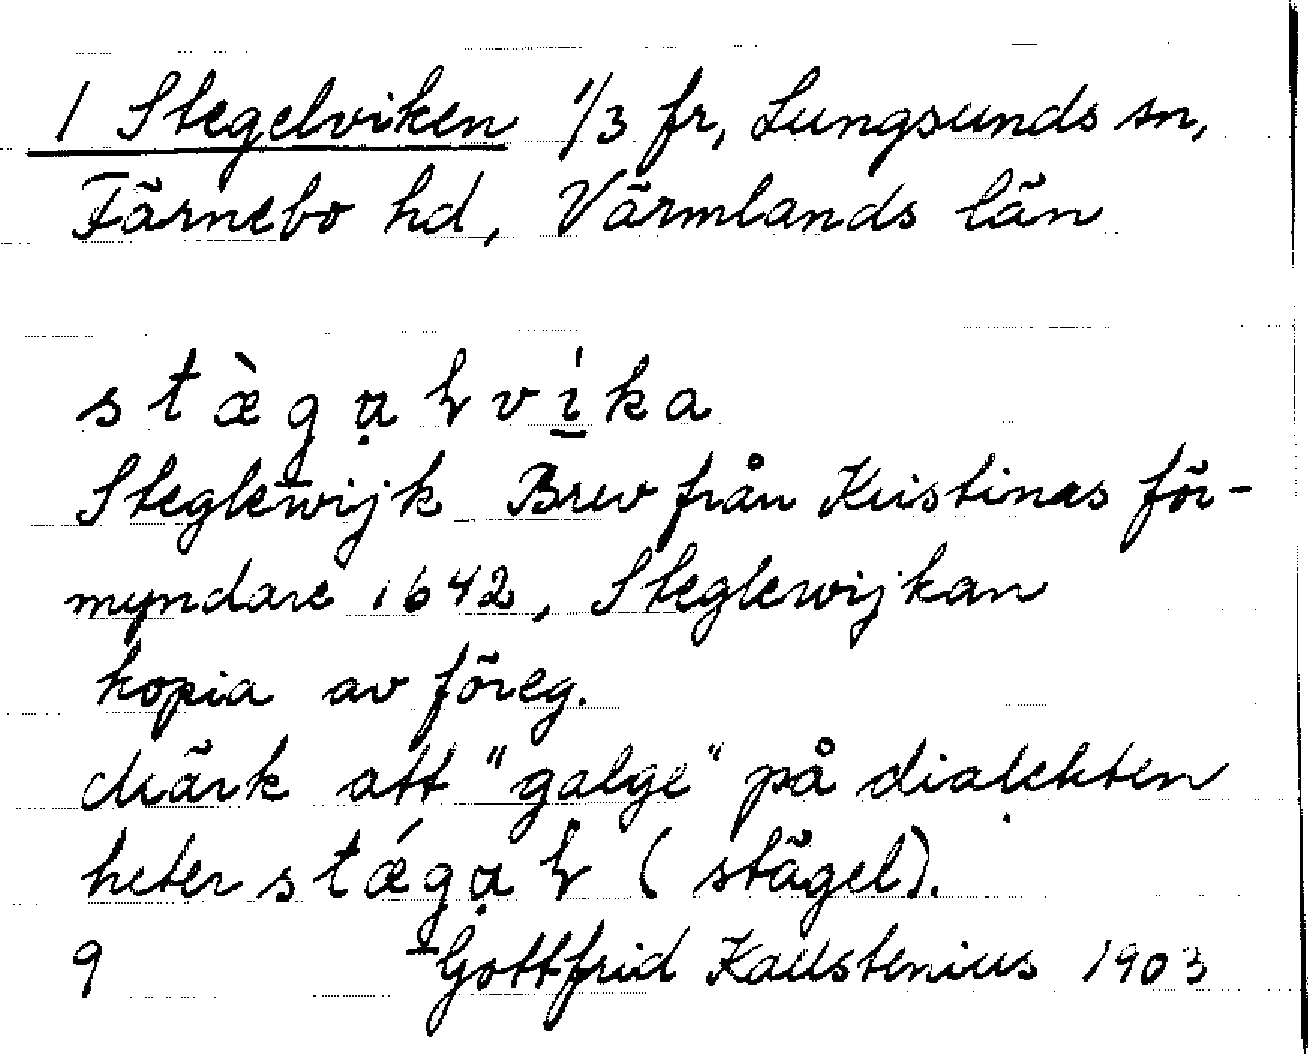 1 Stegelviken 1/3 fr, Lungsunds sn,
Färnebo hd, Värmlands län
stæ̀gα̣ɽvi̲̍ka
Steglewijk Brev från Kristinas för-
myndare 1642, Steglewijkan
kopia av föreg.
Märk att "galge" på dialekten
heter stǽgα̣ɽ (stägel).
9 Gottfrid Kallstenius 1903